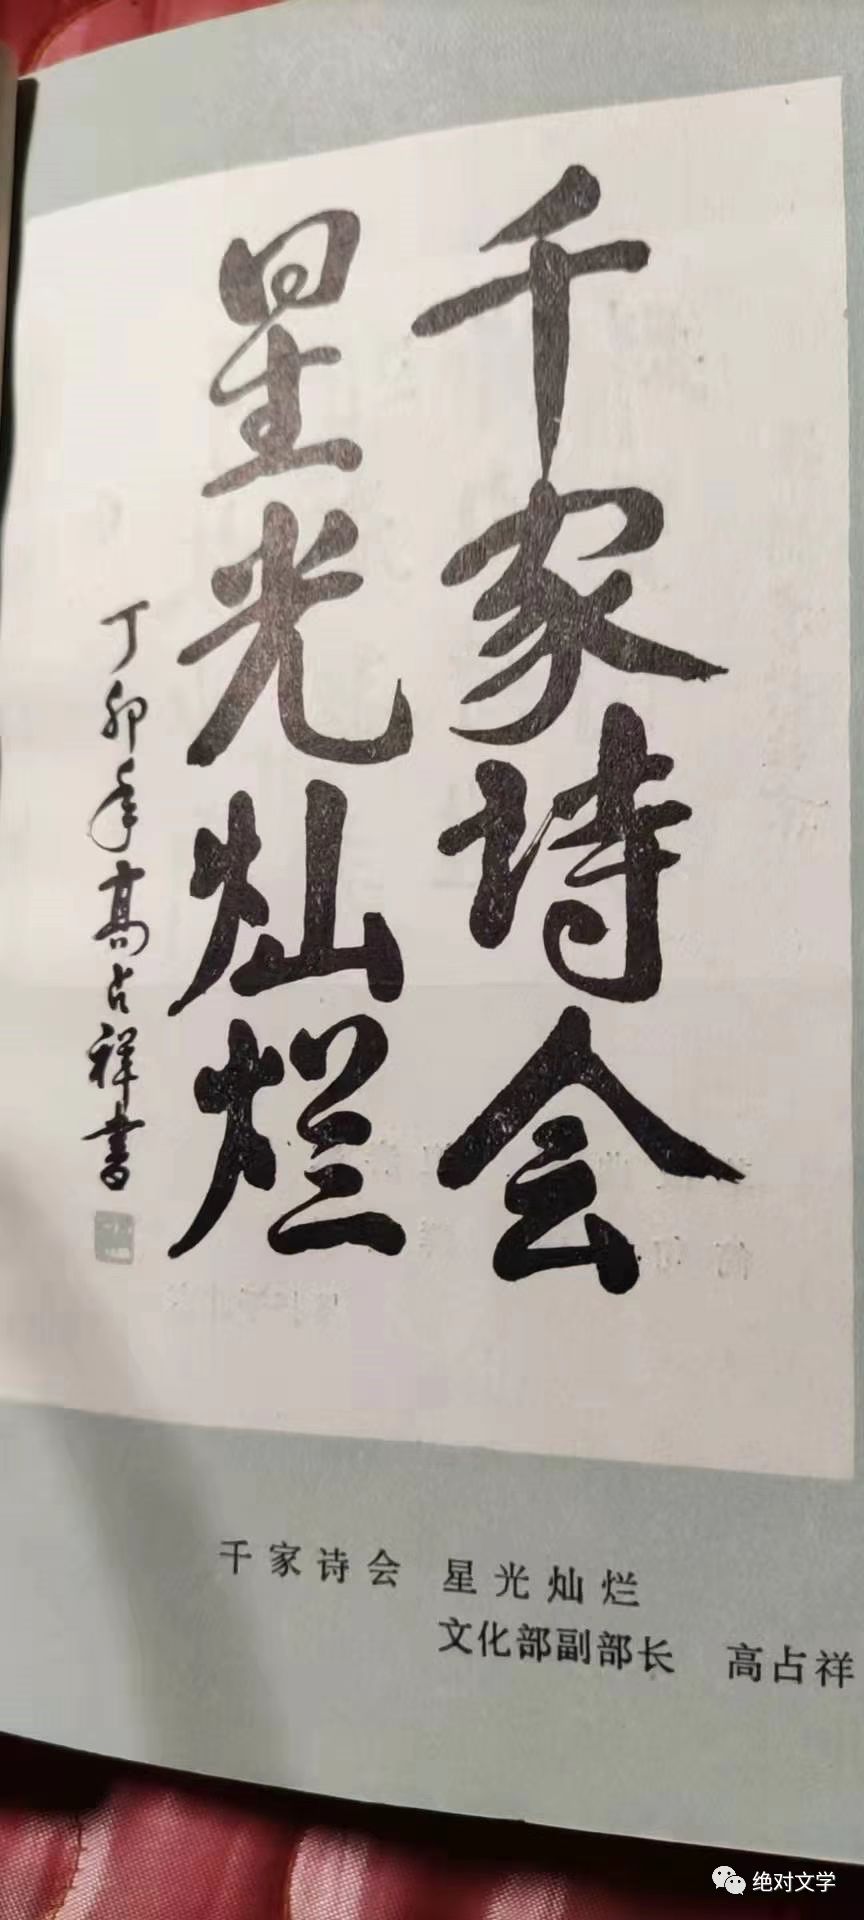 千家诗会
星光灿烂
丁卯年高占祥书
千家诗会 星光灿烂
文化部副部长 高占祥
绝对文学